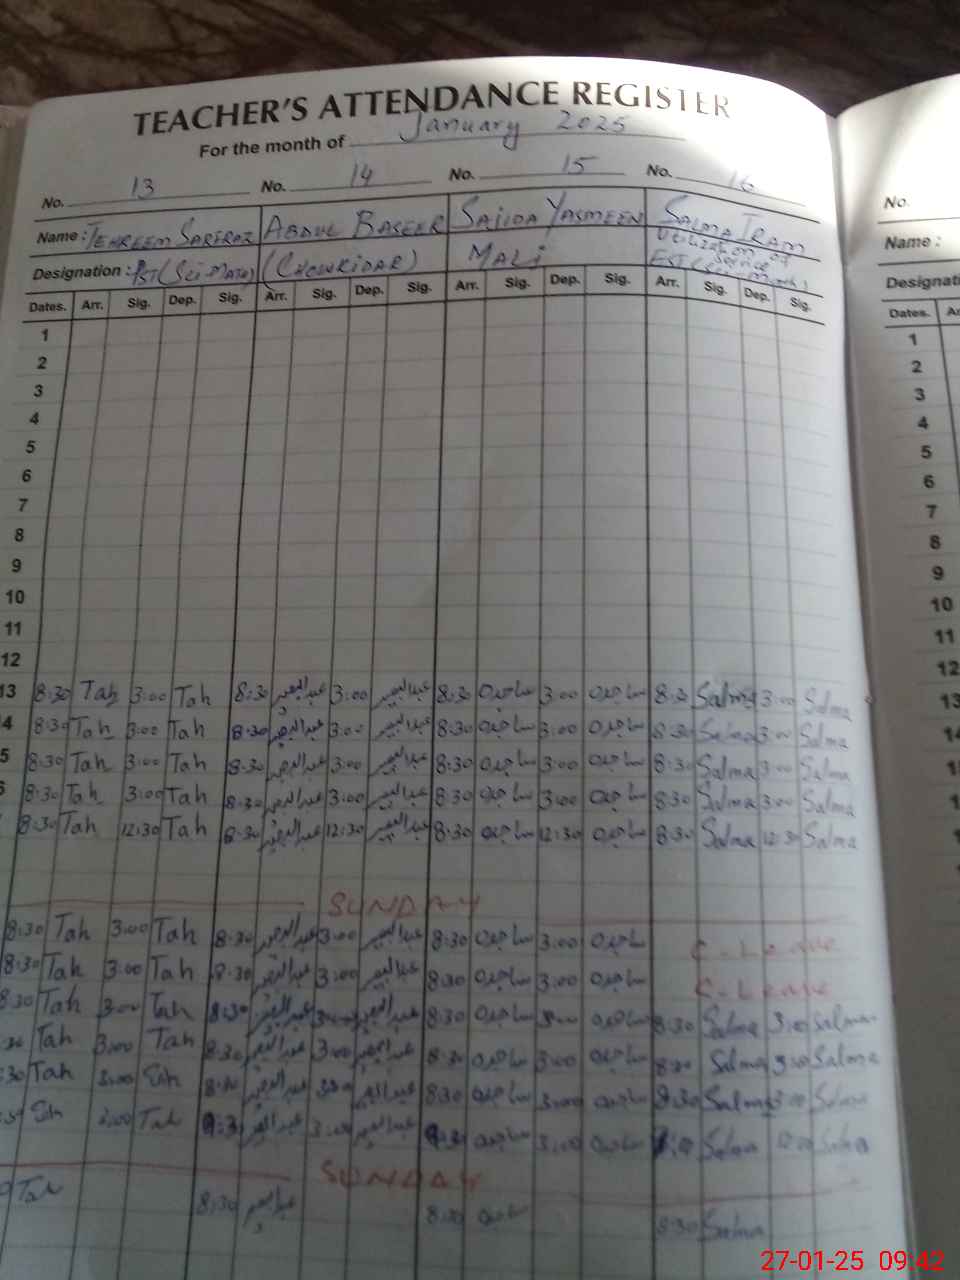 TEACHER'S ATTENDANCE REGISTER
For the month of January 2025
No. 13 No. 14 No. 15 No. 16 No.
Name: TEHREEM SARFRAZ ABDUL BASEER SAJIDA YASMEEN SALMA IRAM Name:
Designation: PST (Sci-Math) (CHOWKIDAR) MALI Utilization of Service EST
Dates. Arr. Sig. Dep. Sig. Arr. Sig. Dep. Sig. Arr. Sig. Dep. Sig. Arr. Sig. Dep. Sig. Dates.
1 1
2 2
3 3
4 4
5 5
6 6
7 7
8 8
9 9
10 10
11 11
12 12
13 8:30 Tah 3:00 Tah 8:30 عبدالبصیر 3:00 عبدالبصیر 8:30 ساجدہ 3:00 ساجدہ 8:30 Salma 3:00 Salma 13
4 8:30 Tah 3:00 Tah 8:30 عبدالبصیر 3:00 عبدالبصیر 8:30 ساجدہ 3:00 ساجدہ 8:30 Salma 3:00 Salma
5 8:30 Tah 3:00 Tah 8:30 عبدالبصیر 3:00 عبدالبصیر 8:30 ساجدہ 3:00 ساجدہ 8:30 Salma 3:00 Salma
8:30 Tah 3:00 Tah 8:30 عبدالبصیر 3:00 عبدالبصیر 8:30 ساجدہ 3:00 ساجدہ 8:30 Salma 3:00 Salma
8:30 Tah 12:30 Tah 8:30 عبدالبصیر 12:30 عبدالبصیر 8:30 ساجدہ 12:30 ساجدہ 8:30 Salma 12:30 Salma
SUNDAY
8:30 Tah 3:00 Tah 8:30 عبدالبصیر 3:00 عبدالبصیر 8:30 ساجدہ 3:00 ساجدہ C-Leave
8:30 Tah 3:00 Tah 8:30 عبدالبصیر 3:00 عبدالبصیر 8:30 ساجدہ 3:00 ساجدہ C-Leave
8:30 Tah 3:00 Tah 8:30 عبدالبصیر 3:00 عبدالبصیر 8:30 ساجدہ 3:00 ساجدہ 8:30 Salma 3:00 Salma
Tah 3:00 Tah 8:30 عبدالبصیر 3:00 عبدالبصیر 8:30 ساجدہ 3:00 ساجدہ 8:30 Salma 3:00 Salma
Tah 3:00 8:30 عبدالبصیر عبدالبصیر 8:30 ساجدہ 3:00 ساجدہ 8:30 Salma 3:00 Salma
3:00 Tah عبدالبصیر 3:00 عبدالبصیر ساجدہ 3:00 ساجدہ Salma Salma
SUNDAY
Tah 8:30 عبدالبصیر 8:30 ساجدہ 8:30 Salma
27-01-25 09:42